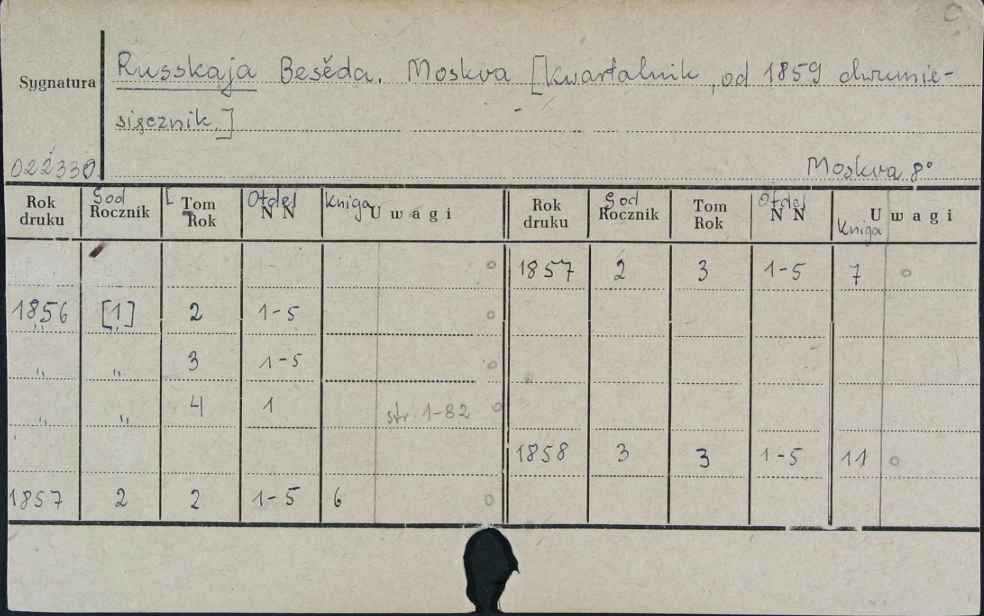 Russkaja Besěda. Moskva [kwartalnik, od 1859 dwumie-
Sygnatura
sięcznik.]
022330.
Moskva 8°
Rok druku God Rocznik Tom Rok Otdel N N Kniga Uwagi Rok druku God Rocznik Tom Rok Otdel N N Kniga Uwagi
1857 2 3 1-5 7
1856 [1] 2 1-5
„ „ 3 1-5
„ „ 4 1 str. 1-82
1858 3 3 1-5 11
1857 2 2 1-5 6